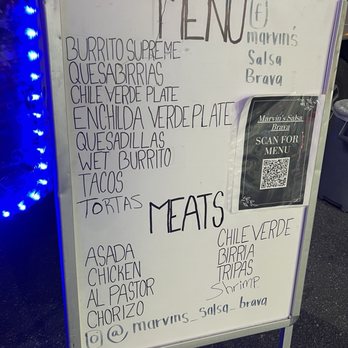 MENU
(f)
marvin's
Salsa
Brava
BURRITO SUPREME
QUESABIRRIAS
CHILE VERDE PLATE
ENCHILDA VERDE PLATE
QUESADILLAS
WET BURRITO
TACOS
TORTAS
Marvin's Salsa
Brava
SCAN FOR
MENU
MEATS
ASADA
CHICKEN
AL PASTOR
CHORIZO
CHILE VERDE
BIRRIA
TRIPAS
Shrimp
@marvins_salsa_brava